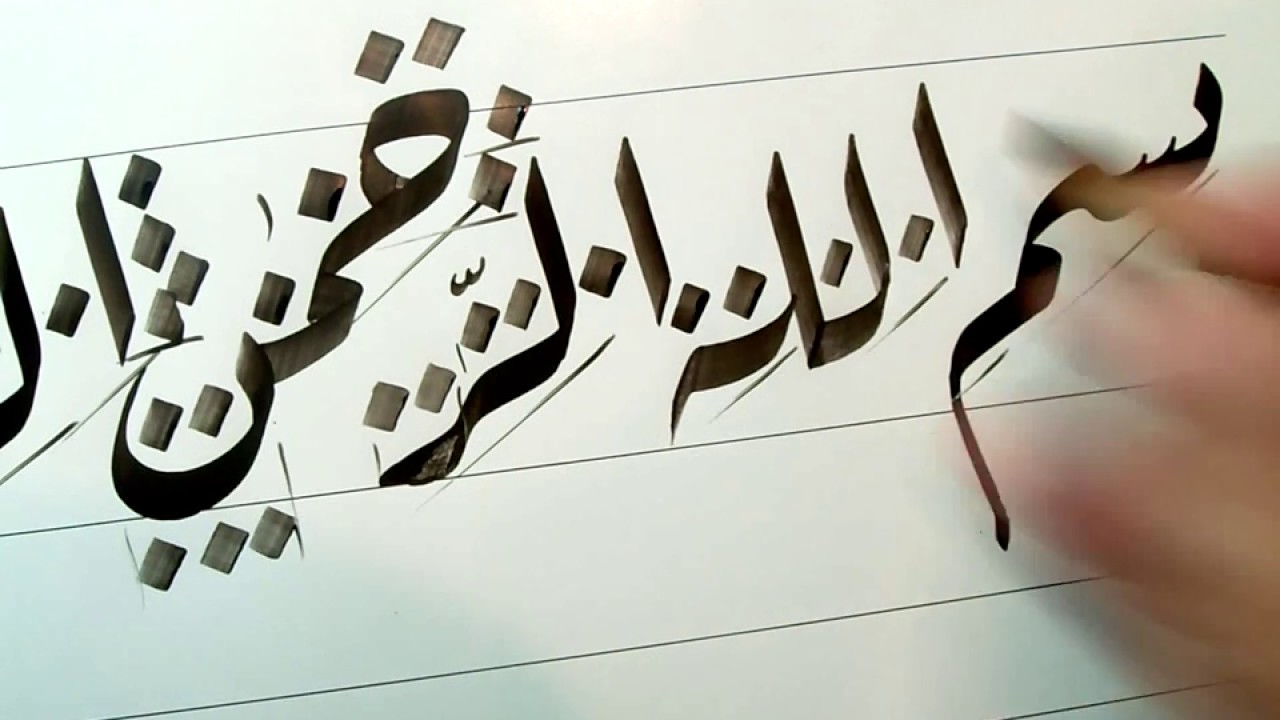 بسم الله الرّحمٰن ال